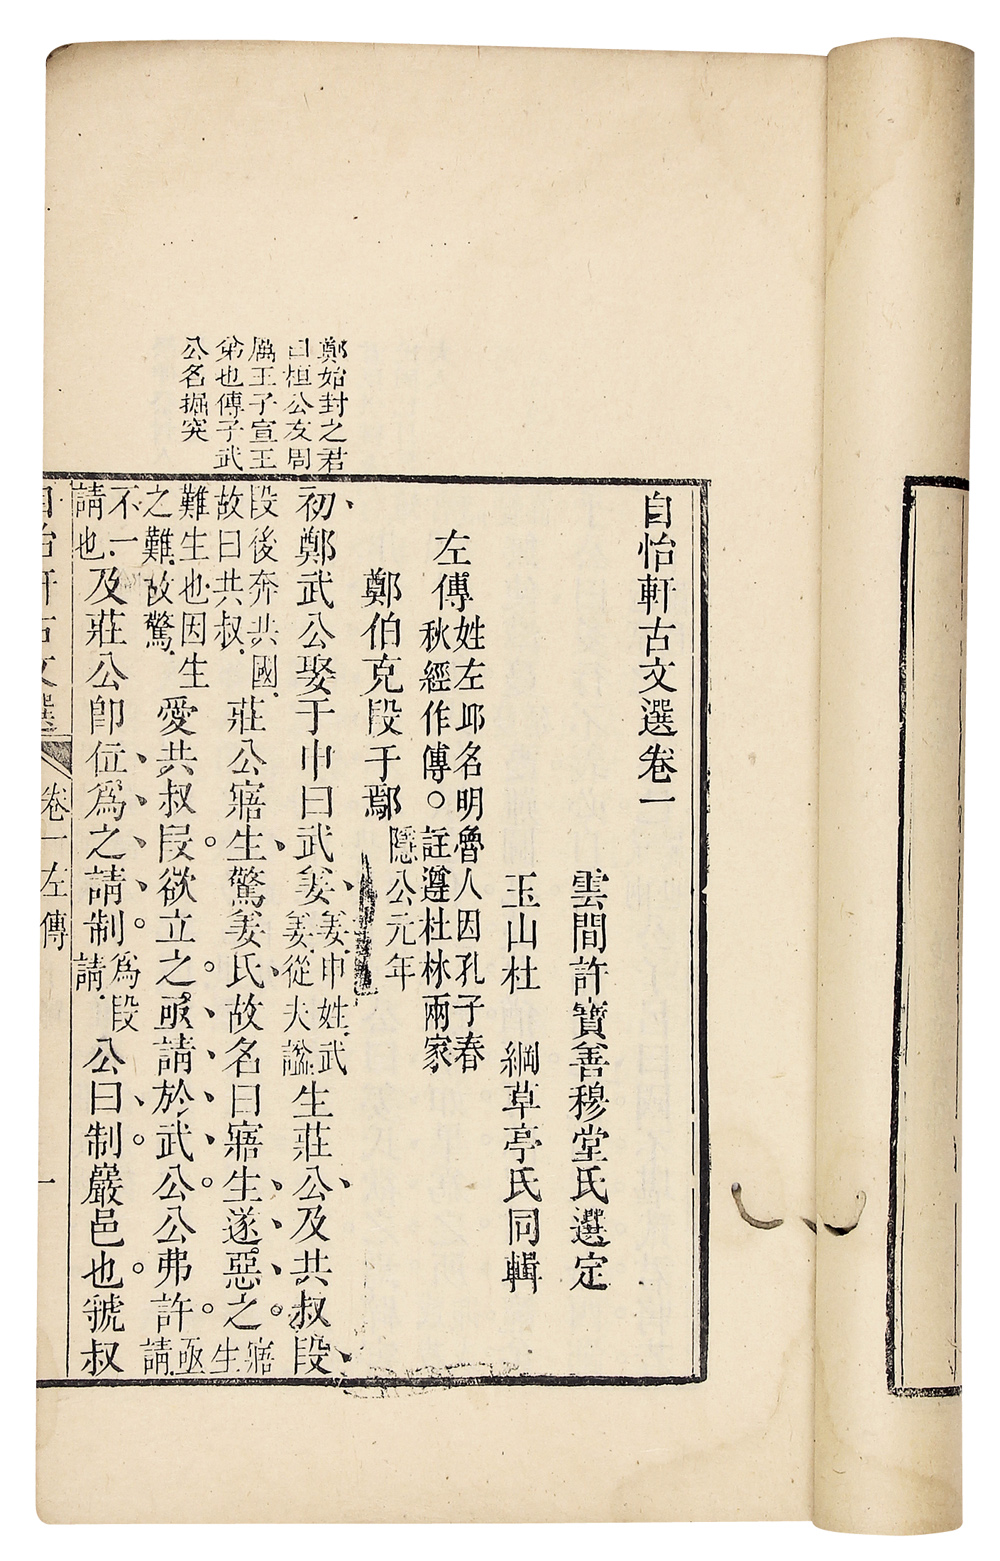 鄭始封之君
曰桓公友周
厲王子宣王
弟也傳子武
公名掘突
自怡軒古文選卷一
雲間許寶善穆堂氏選定
玉山杜 綱草亭氏同輯
左傳姓左邱名明魯人因孔子春秋經作傳○註遵杜林兩家
鄭伯克段于鄢隱公元年
初鄭武公娶于申曰武姜姜申姓武姜從夫諡生莊公及共叔段
段後奔共國故曰共叔莊公寤生驚姜氏故名曰寤生遂惡之寤生
難生也因生之難故驚愛共叔段欲立之亟請於武公公弗許亟請
不一請也及莊公卽位爲之請制爲段請公曰制巖邑也虢叔
自怡軒古文選 卷一左傳 一